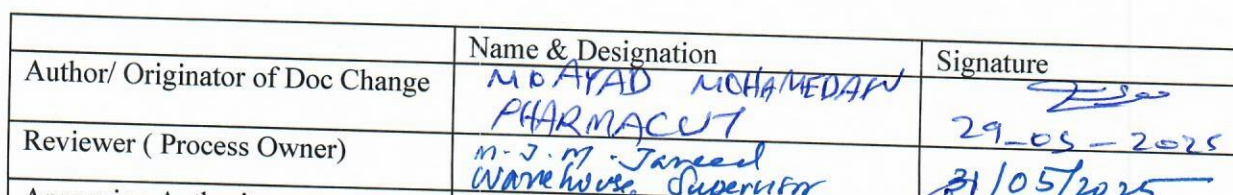 Name & Designation Signature
Author/ Originator of Doc Change MOAYAD MOHAMEDAN
PHARMACUT 29-05-2025
Reviewer ( Process Owner) M.J.M.Jameed
Warehouse Supervisor 31/05/2025